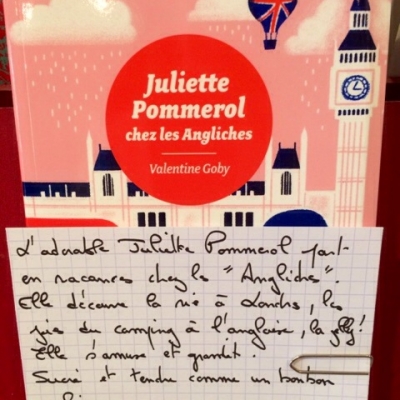 Juliette
Pommerol
chez les Angliches
Valentine Goby
L'adorable Juliette Pommerol part
en vacances chez les "Angliches".
Elle découvre la vie à Londres, les
joies du camping à l'anglaise, la jelly!
Elle s'amuse et grandit.
Sucré et tendre comme un bonbon